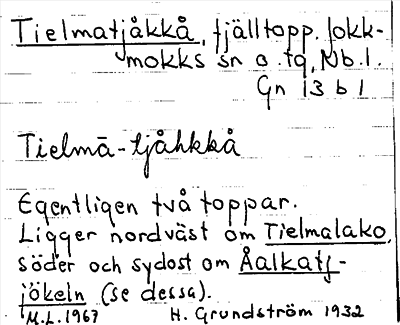 Tielmatjåkkå, fjälltopp. Jokk-
mokks sn o. tg, Nb. l.
Gn 13 b 1
Tielmā-tjåhkkå
Egentligen två toppar.
Ligger nordväst om Tielmalako,
söder och sydost om Åalkatj-
jökeln (se dessa).
M.L. 1967 H. Grundström 1932